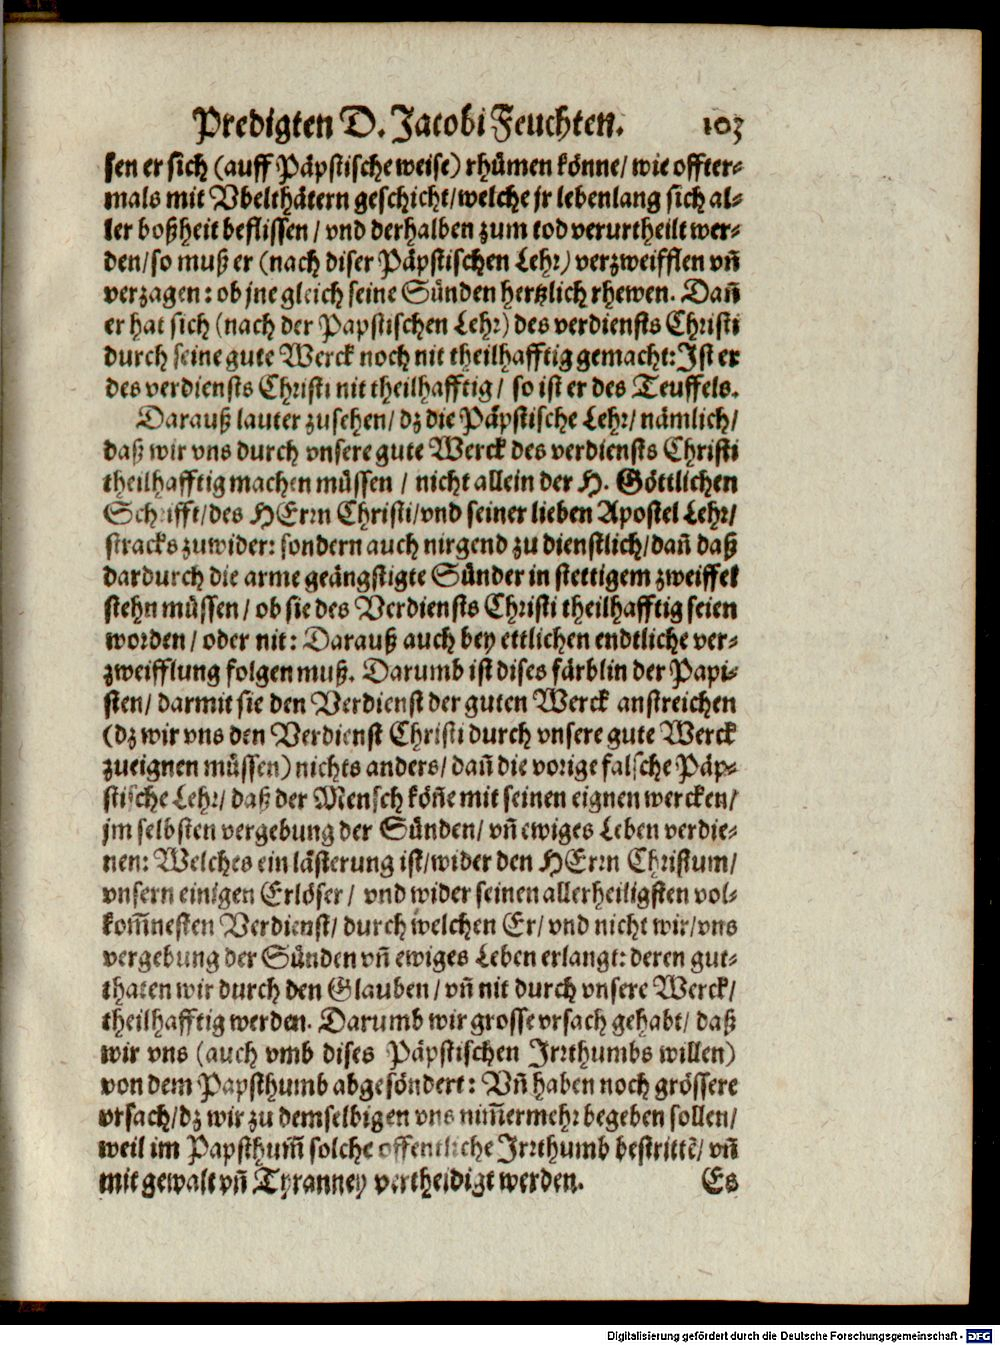 Predigten D. Jacobi Feuchten. 103
sen er sich (auff Päpstische weise) rhümen könne/ wie offter-
mals mit Vbelthätern geschicht/welche jr lebenlang sich al-
ler boßheit beflissen / vnd derhalben zum tod verurtheilt wer-
den/so muß er (nach diser Päpstischen Lehr) verzweifflen vñ
verzagen: ob jne gleich seine Sünden hertzlich rhewen. Dañ
er hat sich (nach der Papstischen Lehr) des verdiensts Christi
durch seine gute Werck noch nit theilhafftig gemacht: Ist er
des verdiensts Christi nit theilhafftig/ so ist er des Teuffels.
Darauß lauter zusehen/ dz die Päpstische Lehr/ nämlich/
daß wir vns durch vnsere gute Werck des verdiensts Christi
theilhafftig machen müssen / nicht allein der H. Göttlichen
Schrifft/des HErrn Christi/vnd seiner lieben Apostel Lehr/
stracks zuwider: sondern auch nirgend zu dienstlich/dañ daß
dardurch die arme geängstigte Sünder in stettigem zweiffel
stehn müssen / ob sie des Verdiensts Christi theilhafftig seien
worden/ oder nit: Darauß auch bey ettlichen endtliche ver-
zweifflung folgen muß. Darumb ist dises färblin der Papi-
sten/ darmit sie den Verdienst der guten Werck anstreichen
(dz wir vns den Verdienst Christi durch vnsere gute Werck
zueignen müssen) nichts anders/ dañ die vorige falsche Päp-
stische Lehr/ daß der Mensch köñe mit seinen eignen wercken/
jm selbsten vergebung der Sünden/ vñ ewiges Leben verdie-
nen: Welches ein lästerung ist/wider den HErrn Christum/
vnsern einigen Erlöser/ vnd wider seinen allerheiligsten vol-
kom̃nesten Verdienst/ durch welchen Er/ vnd nicht wir/vns
vergebung der Sünden vñ ewiges Leben erlangt: deren gut-
thaten wir durch den Glauben/ vñ nit durch vnsere Werck/
theilhafftig werden. Darumb wir grosse vrsach gehabt/ daß
wir vns (auch vmb dises Päpstischen Irrthumbs willen)
von dem Papsthumb abgesöndert: Vñ haben noch grössere
vrsach/dz wir zu demselbigen vns nim̃ermehr begeben sollen/
weil im Papsthum̃ solche offentliche Irrthumb bestrittẽ/ vñ
mit gewalt vñ Tyranney vertheidigt werden. Es
Digitalisierung gefördert durch die Deutsche Forschungsgemeinschaft - DFG